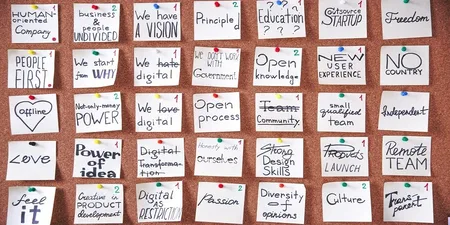 HUMAN-
oriented
Company.
business
&
people
UNDIVIDED
2
We have
A VISION
1
Principled
2
Education
? ? ?
Outsource
STARTUP
1
Freedom
PEOPLE
FIRST.
1
We start
from WHY
We hate
digital
1
We don't work
with
Government
2
Open
knowledge
2
NEW
USER
EXPERIENCE
NO
COUNTRY
offline
1
Not-only-money
POWER
2
We love
digital
1
Open
process
2
Team
Community
1
small
qualified
team
1
Independent
Love
Power of
idea
2
Digital
Transforma-
tion
1
Honesty with
ourselves
Strong
Design
Skills
Product
LAUNCH
Remote
TEAM
feel
it
Creative in
PRODUCT
development
2
DIGITAL
AS
RESTRICTION
1
Passion
2
Diversity
of
opinions
Culture
Trans
parent
1